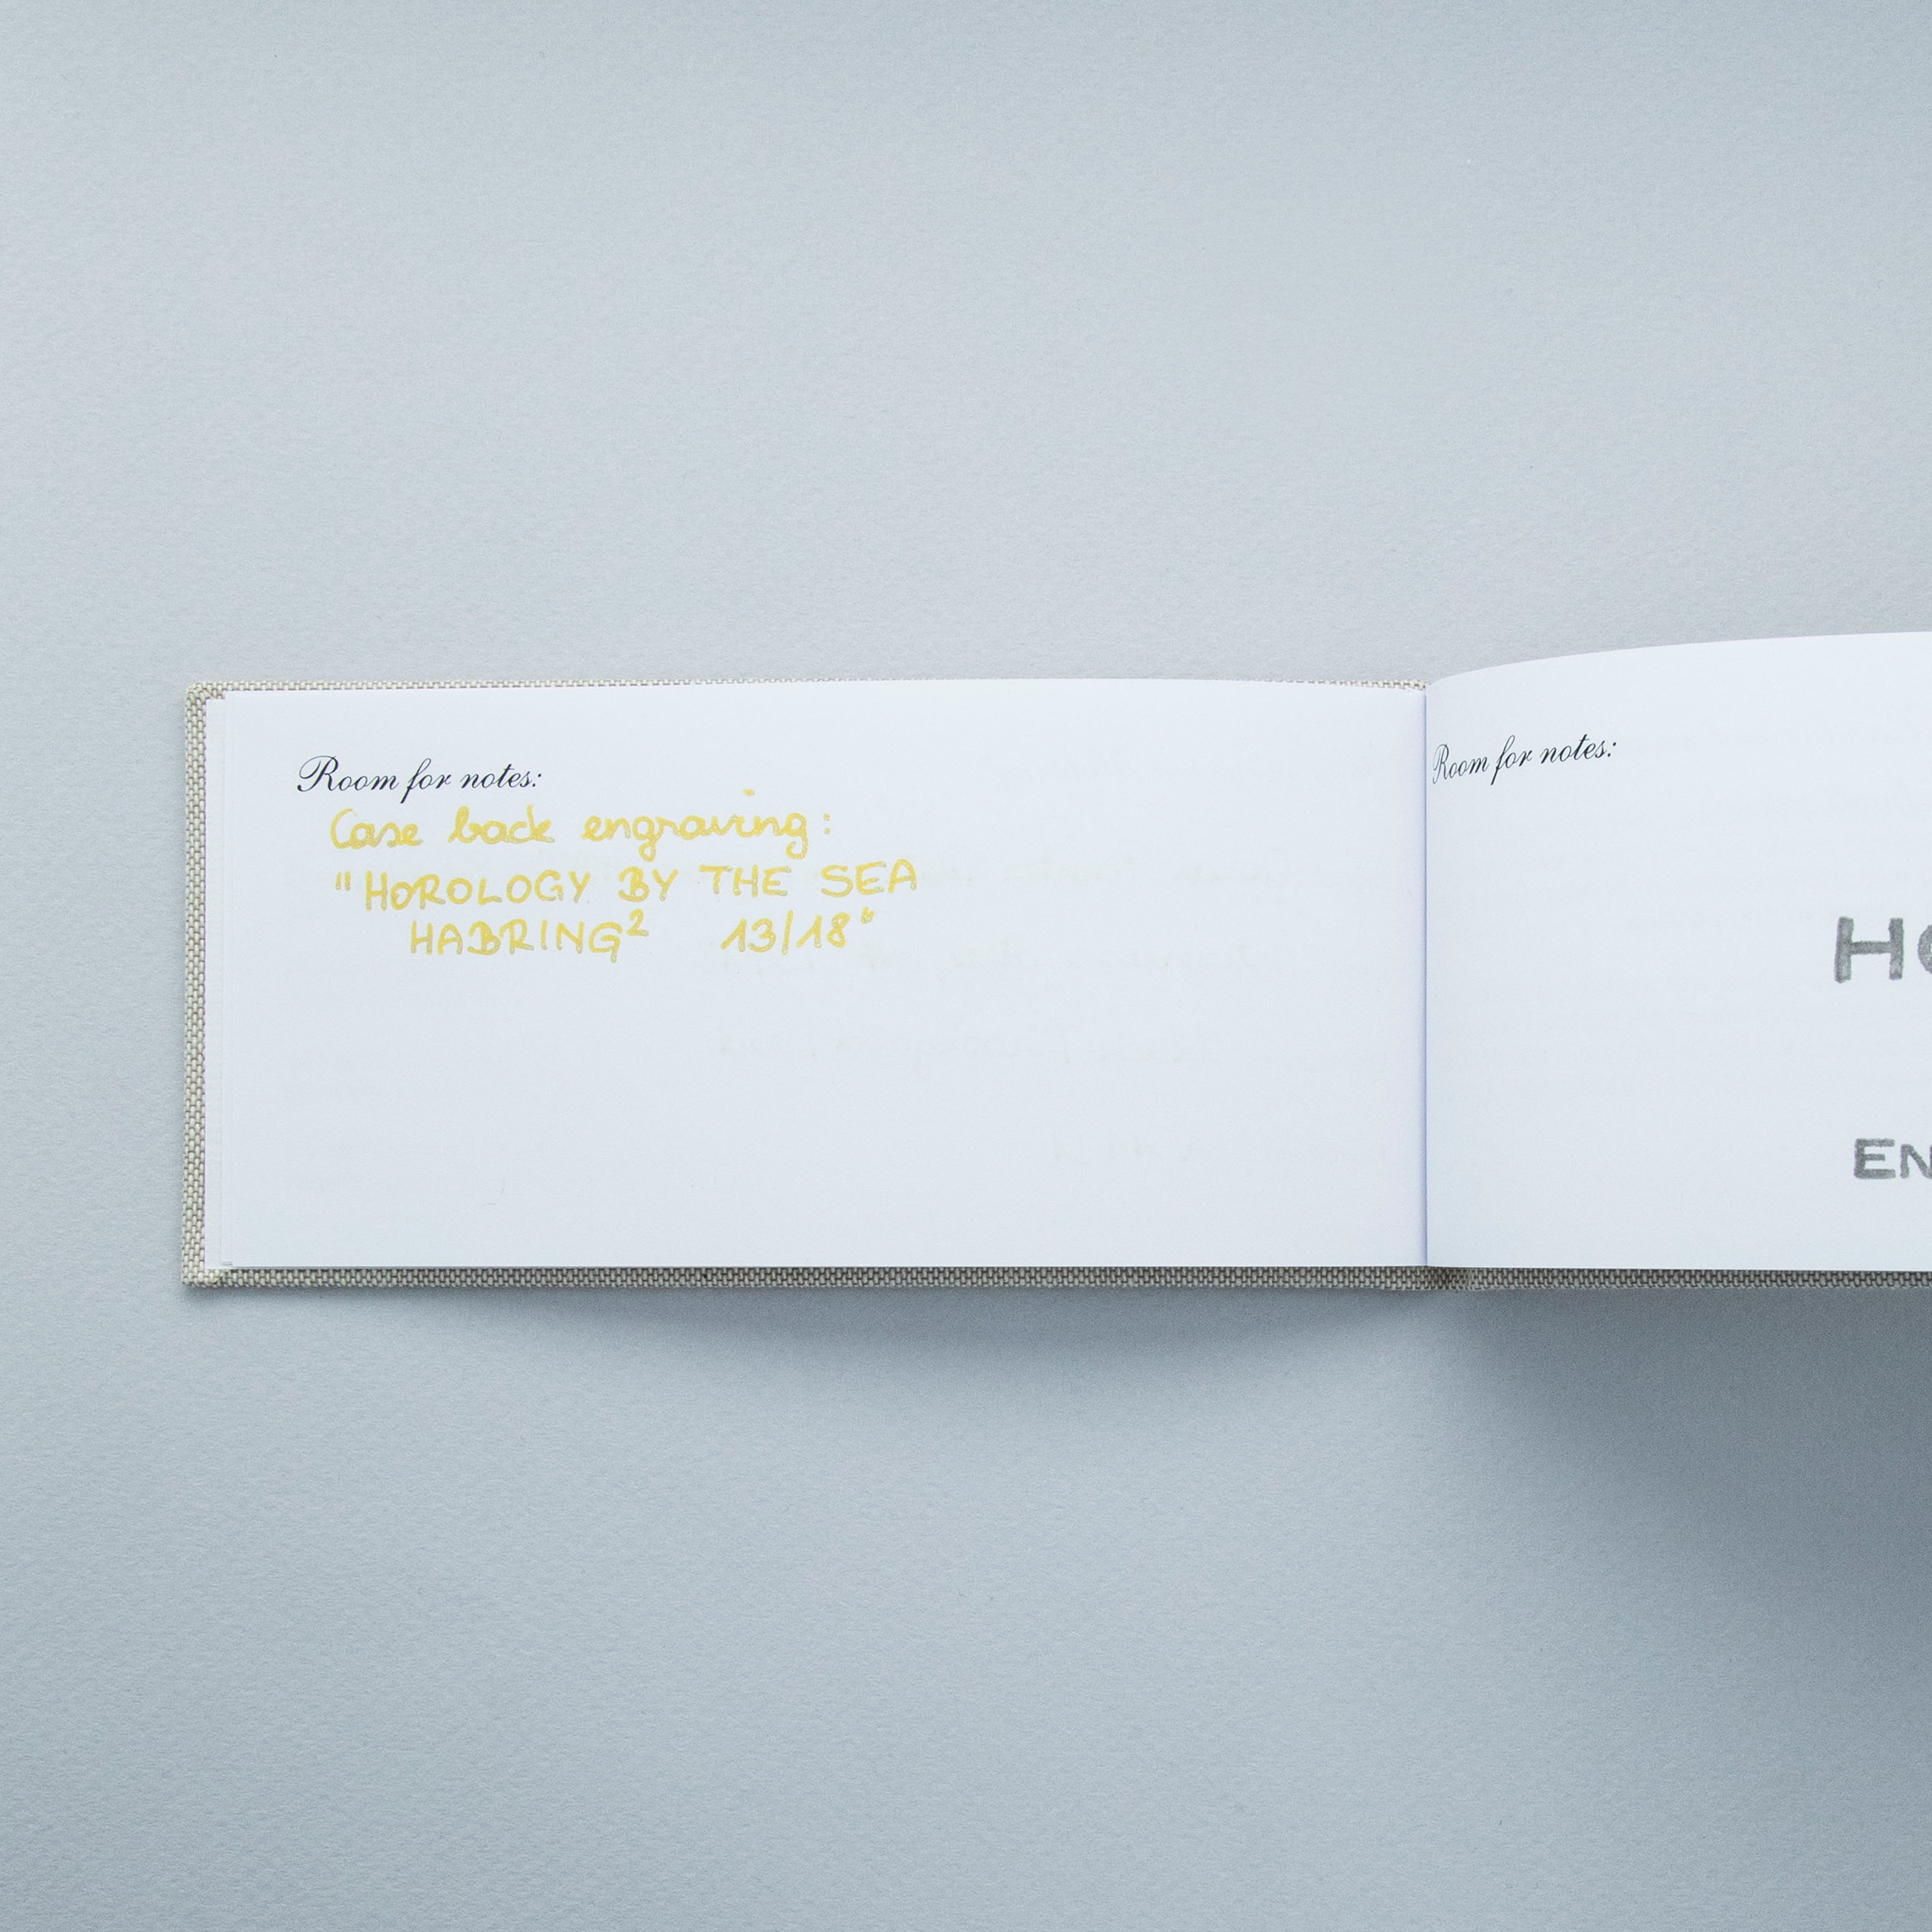 Room for notes:
Case back engraving:
"HOROLOGY BY THE SEA
HABRING² 13/18"
Room for notes:
HO
EN